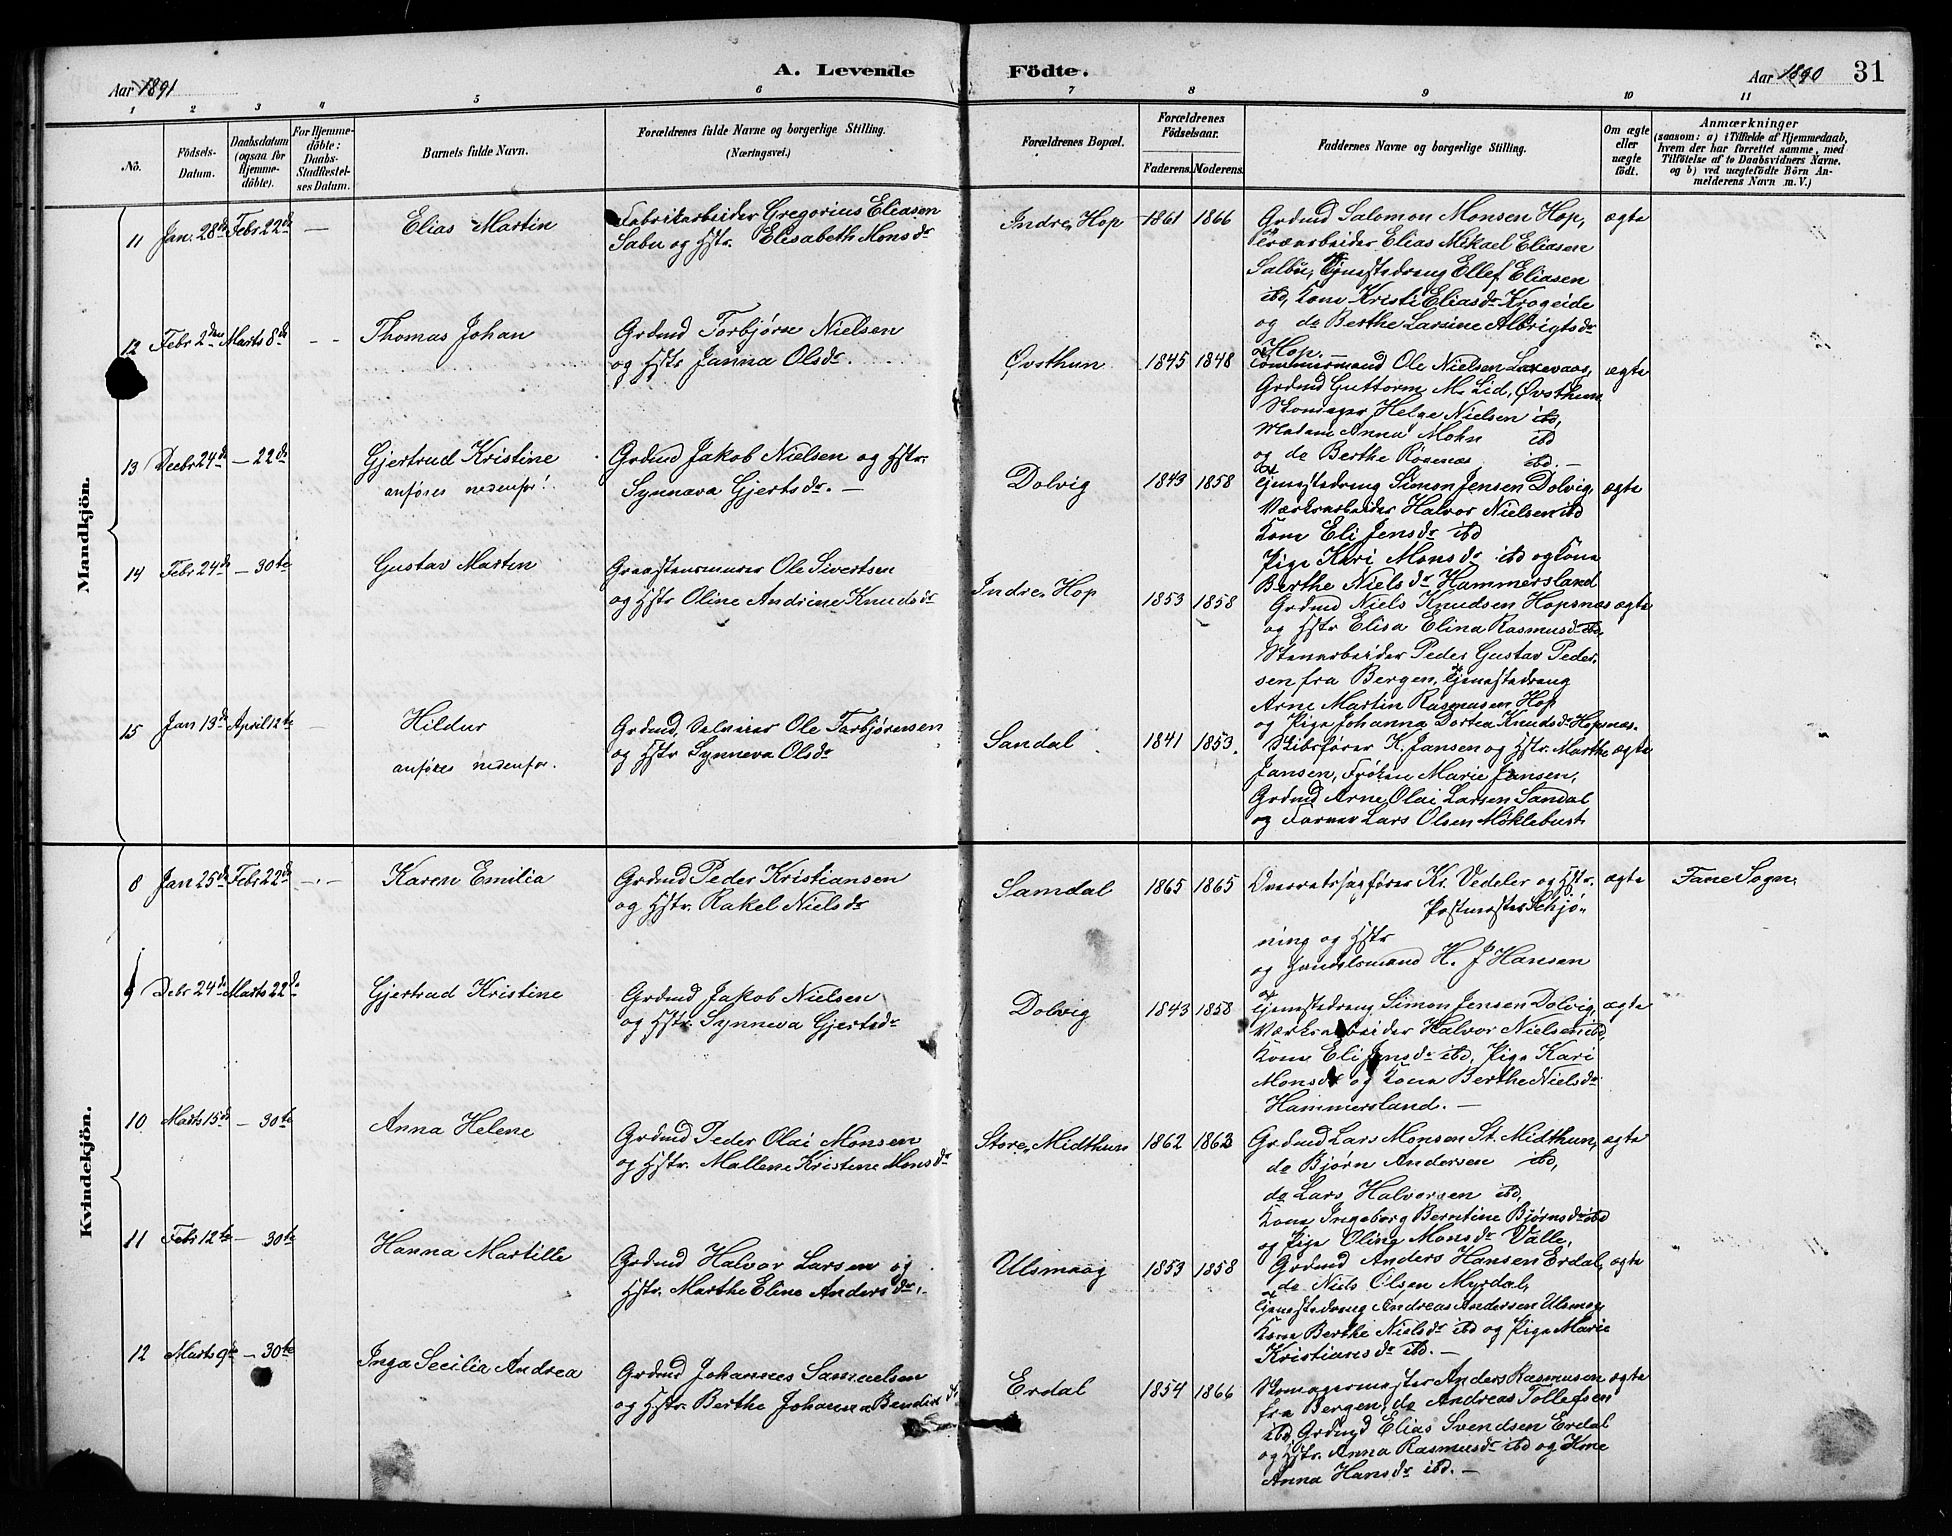 A. Levende Födte.
Aar 1891
Aar 1890 31
1 2 3 4 5 6 7 8 9 10 11
No.
Födsels-Datum.
Daabsdatum (ogsaa for Hjemmedöbte).
For Hjemmedöbte: Daabs-Stadfestelses Datum.
Barnets fulde Navn.
Forældrenes fulde Navne og borgerlige Stilling. (Næringsvei.)
Forældrenes Bopæl.
Forældrenes Födselsaar.
Faderens. Moderens.
Faddernes Navne og borgerlige Stilling.
Om ægte eller uægte födt.
Anmærkninger
(saasom: a) i Tilfælde af Hjemmedaab, hvem der har forrettet samme, med Tilföielse af to Daabsvidners Navne. og b) ved uægtefödte Börn Anmelderens Navn m. V.)
Mandkjön.
11 Jan. 28de Febr 22de — Elias Martin
Fabrikarbeider Gregorius Eliasen
Sabu og Hstr. Elisabeth Monsdr
Indre Hop 1861 1866
Grdmd Salomon Monsen Hop, ægte
Træarbeider Elias Mikael Eliasen
Salbu, Tjenestedreng Ellef Eliasen
ibd, Kone Kristi Eliasdr Krogeide
og do Berthe Larsine Albrigtsdr
Hop. —
12 Febr 2den Marts 8de - - Thomas Johan
Grdmd Torbjørn Nielsen
og Hstr Janna Olsdr.
Øvsthun 1845 1848
Tømmermand Ole Nielsen Laxevaag, ægte
Grdmd Guttorm M. Lid, Øvsthun
Skomager Helge Nielsen ibd,
Madam Anna Mohn ibd
og do Berthe Rosenæs ibd. —
13 Decbr 24de — 22de Gjertrud Kristine
anføres nedenfor!
Grdmd Jakob Nielsen og Hstr.
Synneva Gjertsdr. —
Dolvig 1843 1858
Tjenestedreng Simon Jensen Dolvig, ægte
Værksarbeider Halvor Nielsen ibd
Kone Eli Jensdr ibd
Pige Kari Monsdr ibd og Kone
Berthe Nielsdr Hammersland
14 Febr 24de — 30te Gustav Martin
Graastensmurer Ole Sivertsen
og Hstr Oline Andrine Knudsdr
Indre Hop 1853 1858
Grdmd Niels Knudsen Hopsnæs ægte
og Hstr Elisa Elina Rasmusdr ibd,
Stenarbeider Peder Gustav Peder-
sen fra Bergen, Tjenestedreng
Arne Martin Rasmusen Hop
og Pige Johanna Dortea Knudsdr Hopsnæs.
15 Jan 13de April 12te — Hildur
anføres nedenfor.
Grdmd, Selveier Ole Torbjørensen
og Hstr Synneva Olsdr
Sandal 1841 1853.
Skibsfører K. Jansen og Hstr. Marthe ægte
Jansen, Frøken Marie Jansen,
Grdmd Arne Olai Larsen Sandal
og Farver Lars Olsen Møklebust.
Kvindekjön.
8 Jan 25de Febr 22de - - Karen Emilia
Grdmd Peder Kristiansen
og Hstr. Rakel Nielsdr
Samdal 1865 1865
Overretssagfører Kr. Vedeler og Hstr. ægte Fane Sogn.
Postmester Schjø-
ning og Hstr
og Handelsmand H. J Hansen
9 Debr 24de Marts 22de Gjertrud Kristine
Grdmd Jakob Nielsen
og Hstr. Synneva Gjertsdr
Dolvig 1843 1858
Tjenestedreng Simon Jensen Dolvig, ægte
Værksarbeider Halvor Nielsen ibd,
Kone Eli Jensdr ibd, Pige Kari
Monsdr og Kone Berthe Nielsdr
Hammersland. —
10 Marts 15de — 30te Anna Helene
Grdmd Peder Olai Monsen
og Hstr. Mallene Kristine Monsdr
Store Midthun 1862 1863
Grdmd Lars Monsen St. Midthun, ægte
do Bjørn Andersen ibd,
do Lars Halvorsen ibd,
Kone Ingeborg Berntine Bjørnsdr ibd
og Pige Oline Monsdr Valle,
11 Febr 12te — 30te Hanna Martille
Grdmd Halvor Larsen og
Hstr. Marthe Eline Andersdr.
Ulsmaag 1853 1858
Grdmd Anders Hansen Erdal, ægte
do Niels Olsen Myrdal,
Tjenestedreng Andreas Andersen Ulsmag
Kone Berthe Nielsdr ibd og Pige Marie
Kristiansdr ibd. —
12 Marts 9de — 30te Inga Secilia Andrea
Grdmd Johannes Samuelsen
og Hstr. Berthe Johanna Bendixdr
Erdal 1854 1866
Skomagermester Anders Rasmusen ægte
fra Bergen, do Andreas Tollefsen
ibd, Grdmd Elias Svendsen Erdal
og Hstr. Anna Rasmusdr ibd og Kone
Anna Hansdr ibd. —